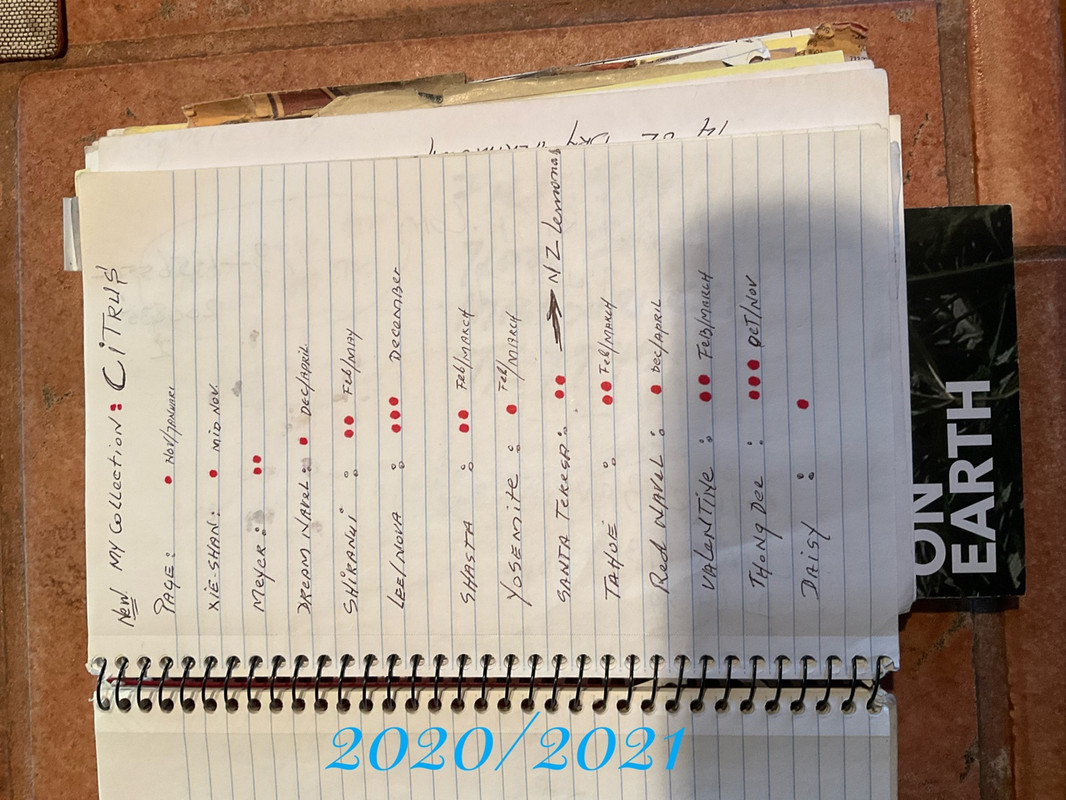 New My Collection: CiTRUS
PAGE: • NOV/JANUARI
XIE-SHAN: • MID NOV.
Meyer: ••
DREAM NAVEL: • DEC/APRIL
SHiRANUi : •• Feb/MAY
LEE/NOVA : ••• December
SHASTA : •• Feb/MARCH
YOSEMiTE : • Feb/MARCH
SANTA TERESA: •• → NZ Lemonas
TAHOE : •• Feb/MARCH
Red NAVEL : • DEC/APRIL
VALENTINE : •• FEB/MARCH
THONG DEE : ••• OET/NOV
DAiSY : •
14 OZ DRY
ON
EARTH
2020/2021